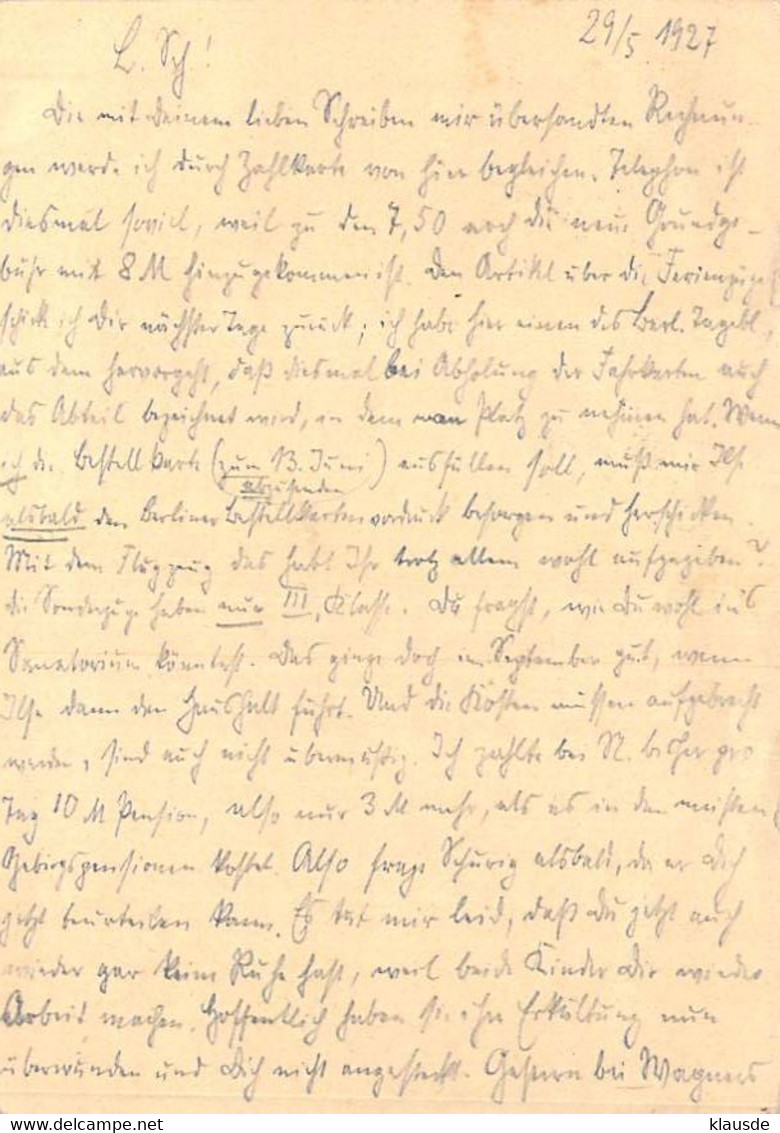 29/5 1927
L. Sch!
Die mit Deinem lieben Schreiben mir übersandten Rechnun-
gen werde ich durch Zahlkarte von hier begleichen. Telephon ist
diesmal soviel, weil zu den 7,50 noch die neue Grundge-
bühr mit 8 M hinzugekommen ist. Den Artikel über die Ferienzüge
schick ich Dir nächster Tage zurück; ich habe hier einen des Berl. Tagebl.,
aus dem hervorgeht, daß diesmal bei Abholung der Fahrkarten auch
das Abteil bezeichnet wird, in dem man Platz zu nehmen hat. Wenn
ich die Bestellkarte (zum 13. Juni) ausfüllen soll, muß mir Ilse
abzusenden
alsbald den Berliner Bestellkartenvordruck besorgen und herschicken
Mit dem Flugzeug das habt Ihr trotz allem wohl aufgegeben?
die Sonderzüge haben nur III. Klasse. Du fragst, wie Du wohl ins
Sanatorium könntest. Das ginge doch im September gut, wenn
Ilse dann den Haushalt führt. Und die Kosten müssen aufgebracht
werden, sind auch nicht übermäßig. Ich zahlte bei N. bisher pro
Tag 10 M Pension, also nur 3 M mehr, als es in den meisten
Gebirgspensionen kostet. Also frage Schurig alsbald, da er Dich
jetzt beurteilen kann. Es tut mir leid, daß Du jetzt auch
wieder gar keine Ruhe hast, weil beide Kinder Dir wieder
Arbeit machen. Hoffentlich haben sie ihre Erkältung nun
überwunden und Dich nicht angesteckt. Gestern bei Wagners
klausde
www.delcampe.net